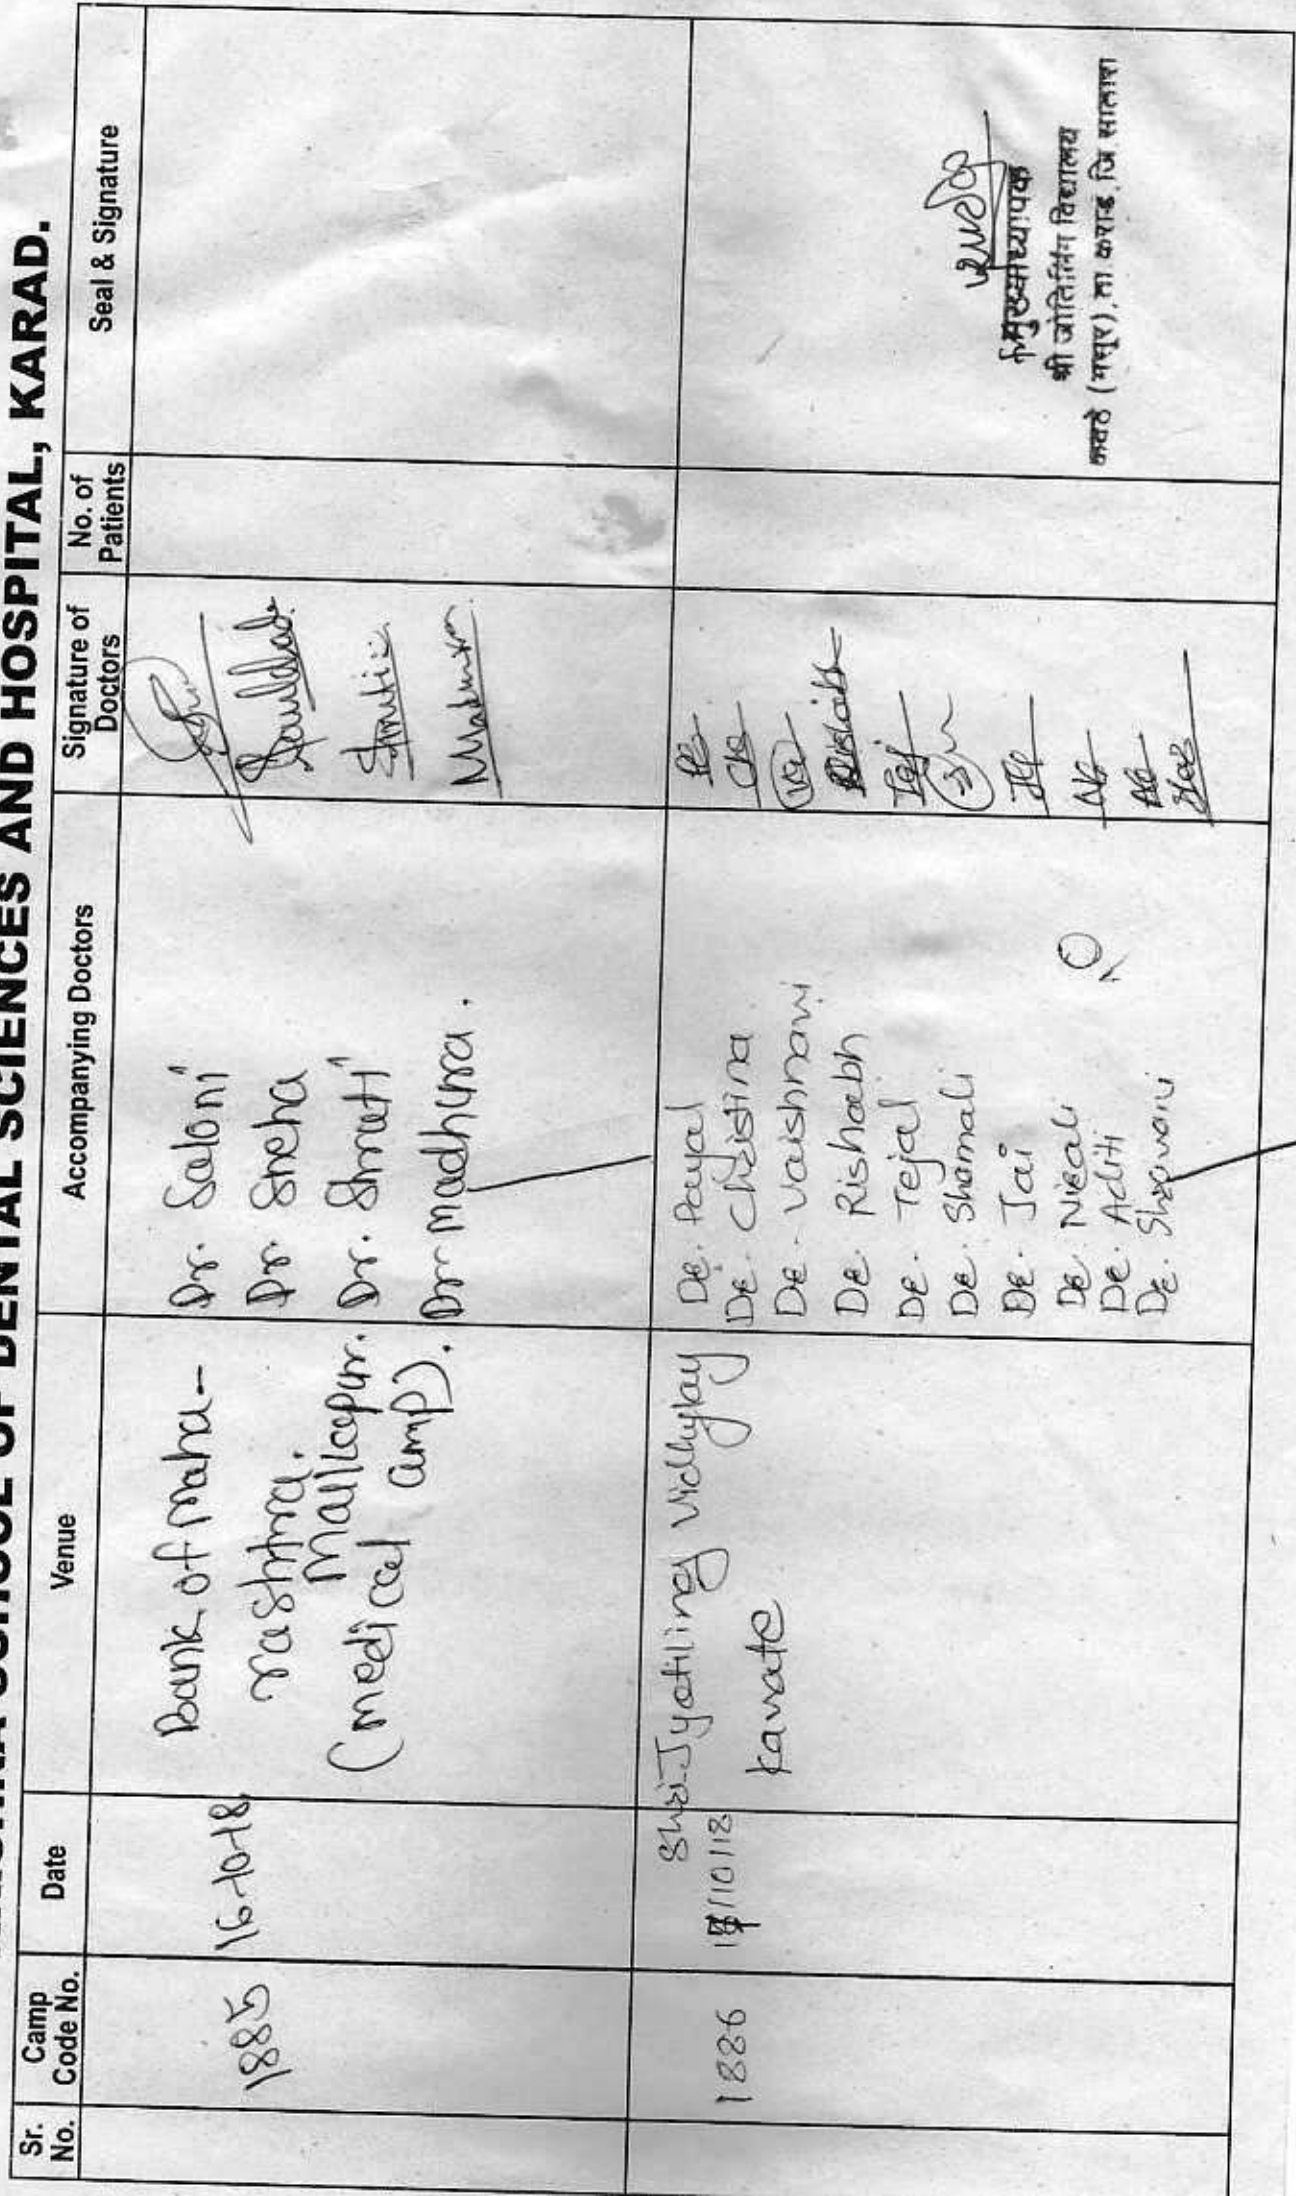 SCHOOL OF DENTAL SCIENCES AND HOSPITAL, KARAD.
Sr. No.
Camp Code No.
Date
Venue
Accompanying Doctors
Signature of Doctors
No. of Patients
Seal & Signature
1885
16-10-18
Bank of Maha-
rashtra.
Malkapur.
(medical camp).
Dr. Saloni
Dr. Sneha
Dr. Smruti
Dr Madhura.
Smruti
Madhura
1886
/10/18
Shri Jyotiling Vidhylay
Kavate
De. Payal
De. Christina
De. Vaishnavi
De. Rishabh
De. Tejal
De. Shamali
De. Jai
De. Nirali
De. Aditi
De. Shravani
मुख्याध्यापक
श्री जोतिर्लिंग विद्यालय
कवठे (मसूर), ता कराड, जि सातारा